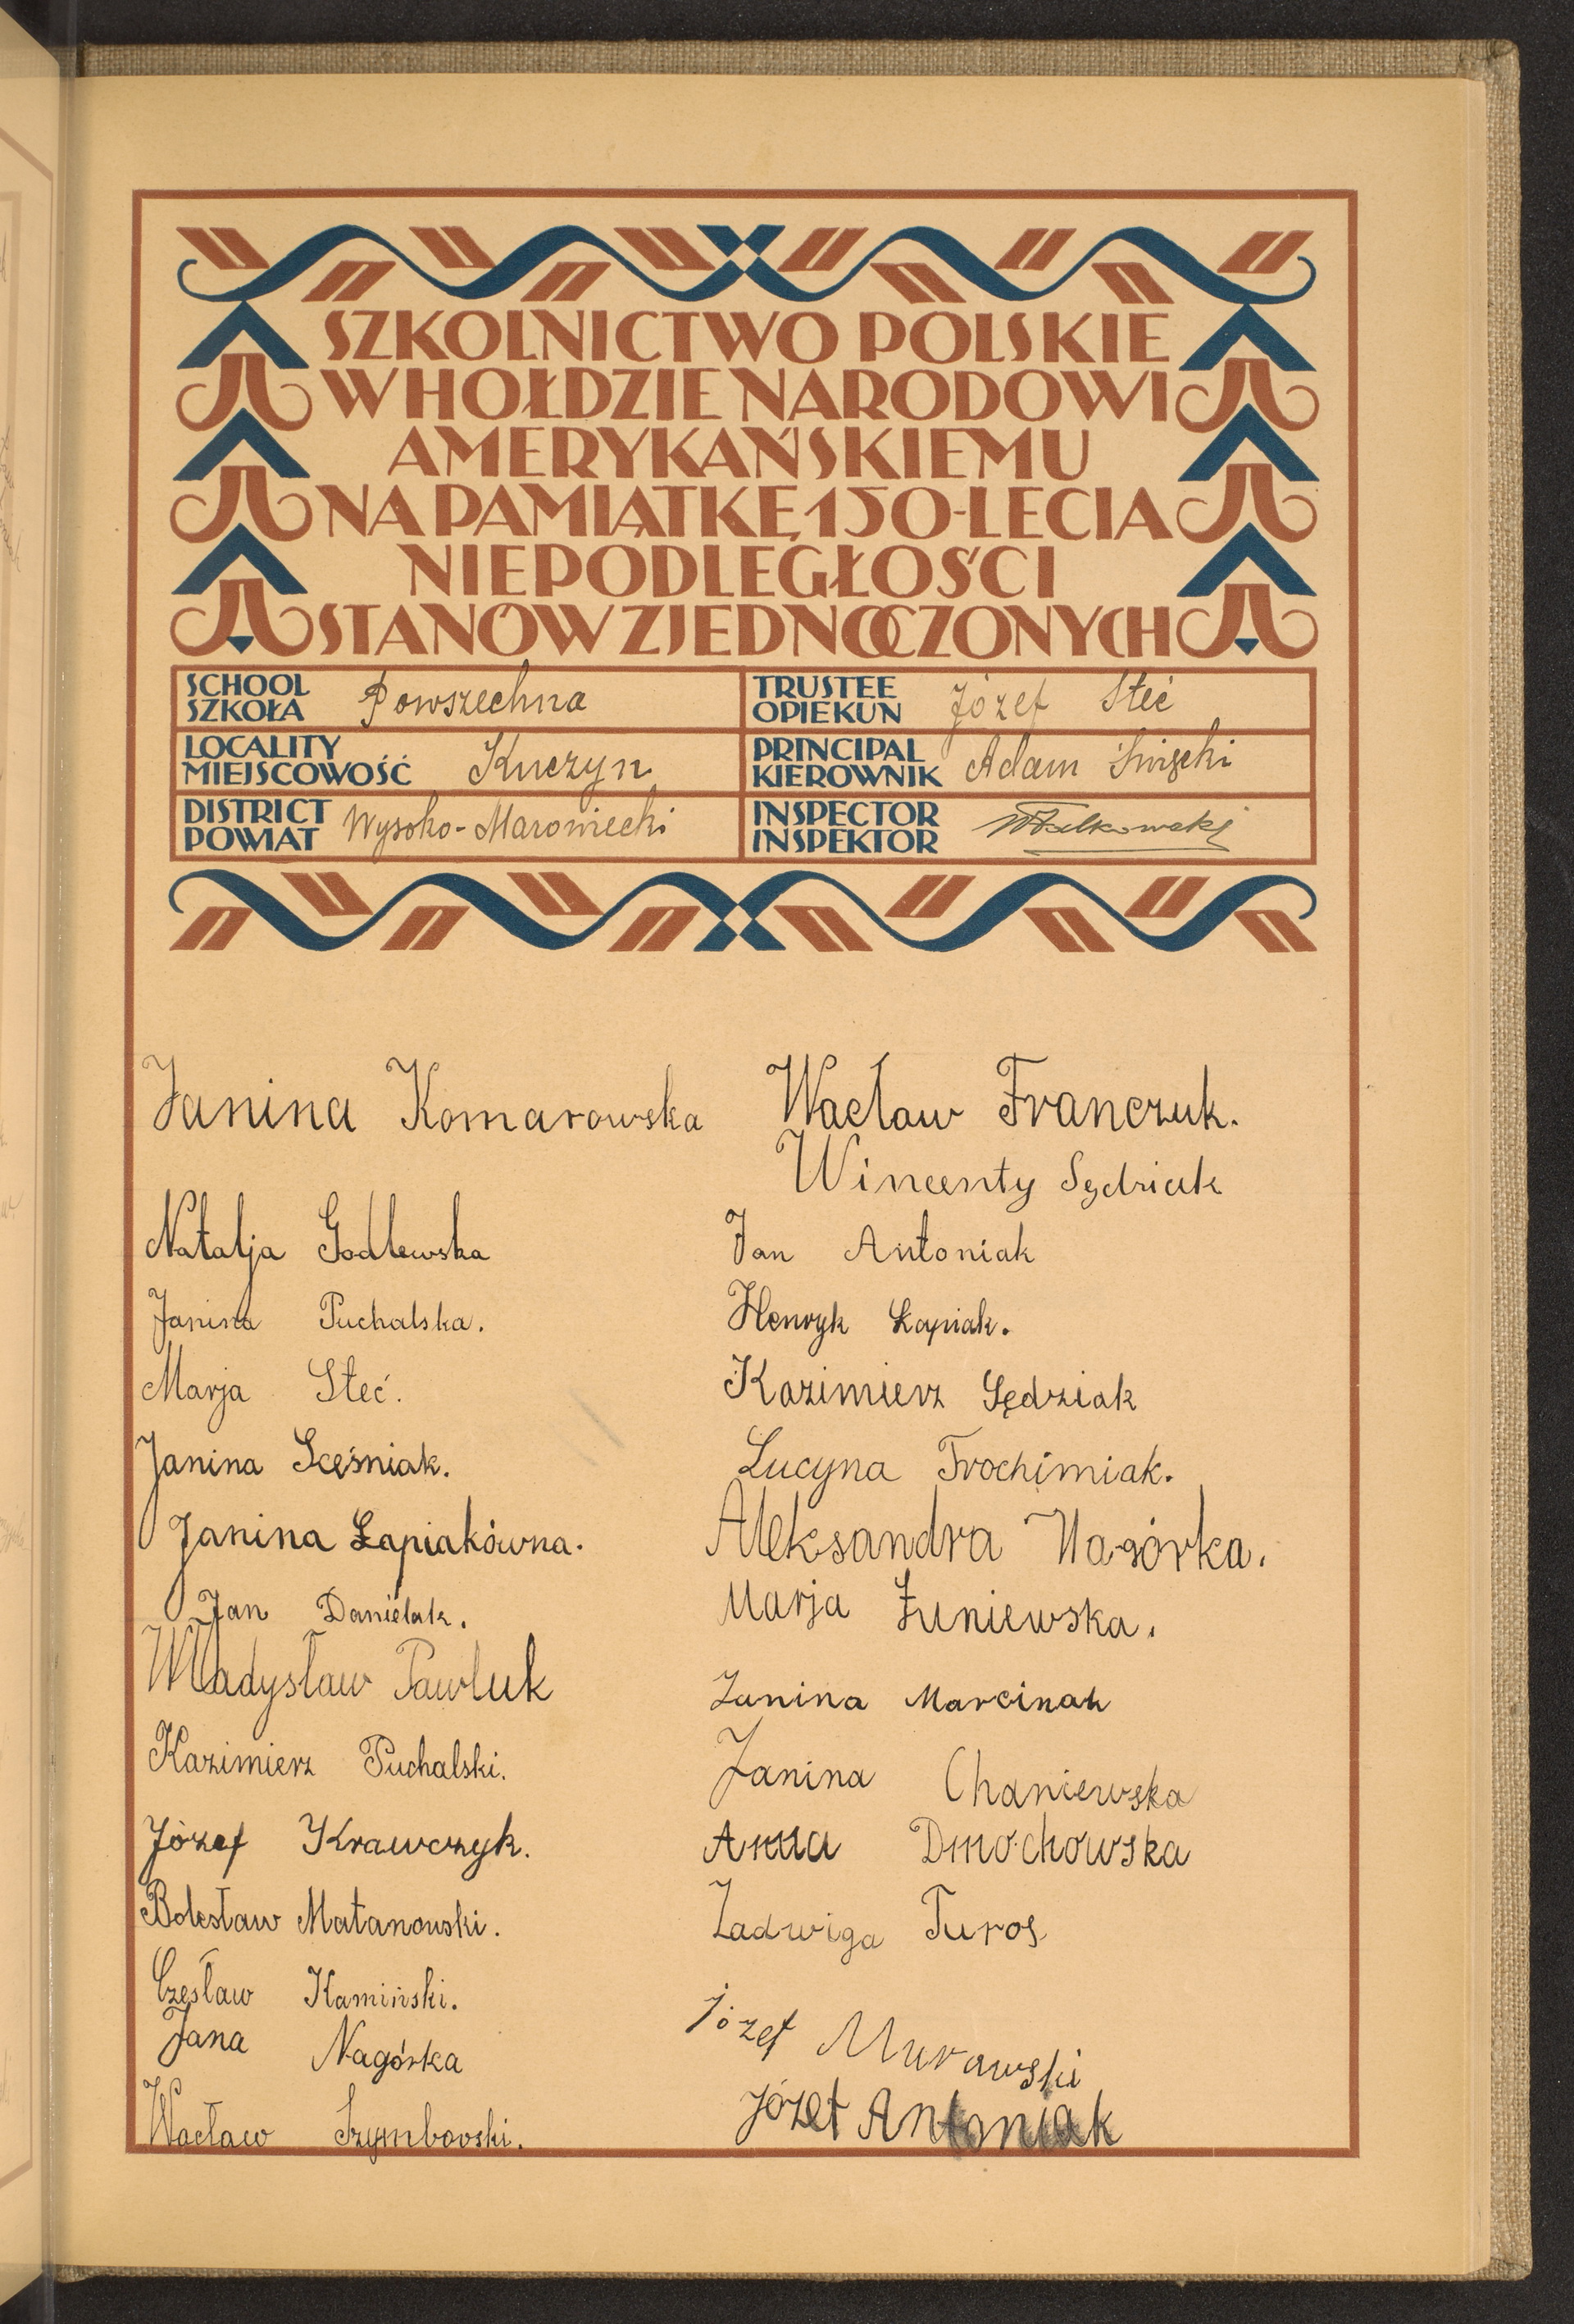 SZKOLNICTWO POLSKIE
W HOŁDZIE NARODOWI
AMERYKAŃSKIEMU
NA PAMIĄTKĘ 150-LECIA
NIEPODLEGŁOŚCI
STANÓW ZJEDNOCZONYCH
SCHOOL
SZKOŁA Powszechna
TRUSTEE
OPIEKUN Józef Steć
LOCALITY
MIEJSCOWOŚĆ Kuczyn
PRINCIPAL
KIEROWNIK Adam Święcki
DISTRICT
POWIAT Wysoko-Mazowiecki
INSPECTOR
INSPEKTOR
Janina Komarowska
Natalja Godlewska
Janina Puchalska.
Marja Steć.
Janina Sceśniak.
Janina Łapiakówna.
Jan Danielak.
Władysław Pawluk
Kazimierz Puchalski.
Józef Krawczyk.
Bolesław Matanowski.
Czesław Kamiński.
Jana Nagórka
Wacław Szymborski.
Wacław Franczuk.
Wincenty Sędziak
Jan Antoniak
Henryk Łapiak.
Kazimierz Sędziak
Lucyna Trochimiak.
Aleksandra Nagórka.
Marja Żuniewska.
Janina Marcinak
Janina Chaniewska
Anna Dmochowska
Jadwiga Turos
Józef Murawski
Józef Antoniak